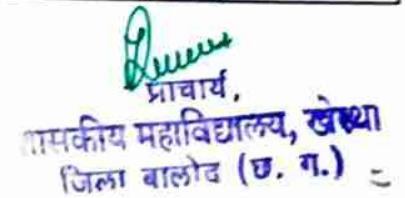 प्राचार्य,
शासकीय महाविद्यालय,
जिला बालोद (छ. ग.)